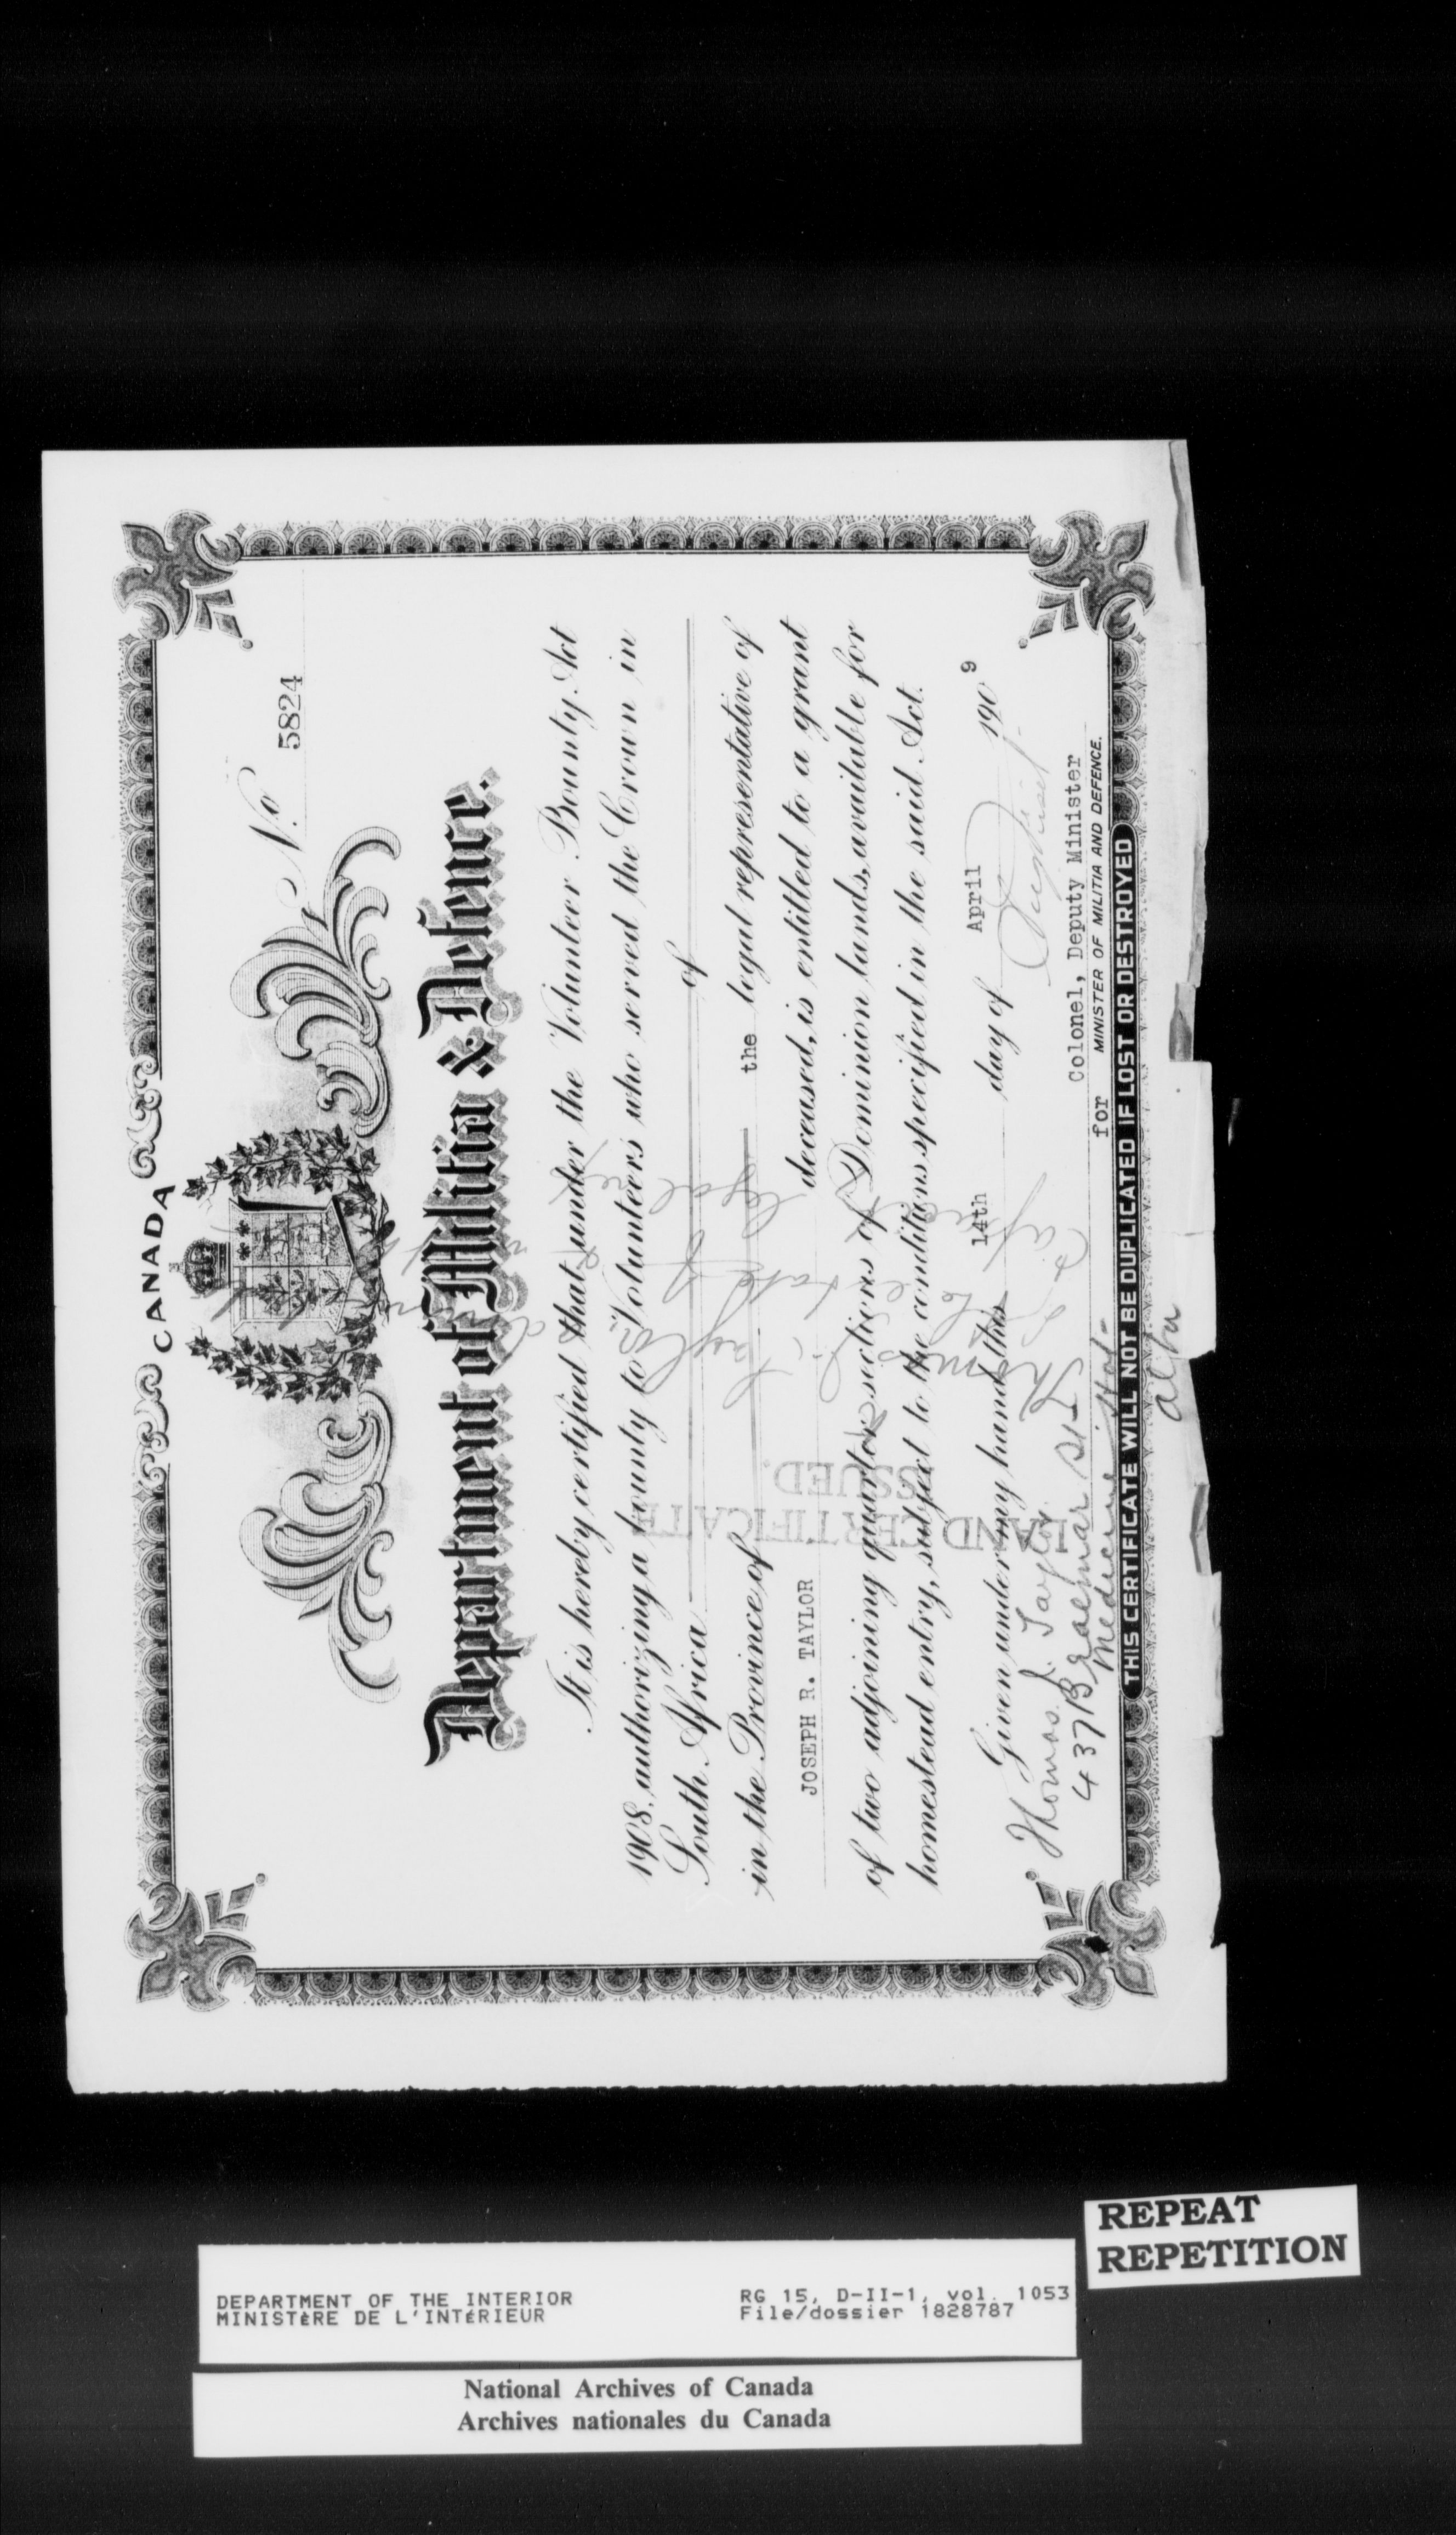 CANADA
No. 5824
Department of Militia & Defence.
It is hereby certified that under the Volunteer Bounty Act
1908, authorizing a bounty to Volunteers who served the Crown in
South Africa of
in the Province of the legal representative of
JOSEPH R. TAYLOR deceased, is entitled to a grant
of two adjoining quarter sections of Dominion lands, available for
homestead entry, subject to the conditions specified in the said Act.
Given under my hand this 14th day of April 1909
Colonel, Deputy Minister
for MINISTER OF MILITIA AND DEFENCE.
Thomas J. Taylor
437 Braemar St
Medicine Hat
Alta
LAND CERTIFICATE
ISSUED.
THIS CERTIFICATE WILL NOT BE DUPLICATED IF LOST OR DESTROYED
REPEAT
REPETITION
DEPARTMENT OF THE INTERIOR
MINISTÈRE DE L'INTÉRIEUR
RG 15, D-II-1, vol. 1053
File/dossier 1828787
National Archives of Canada
Archives nationales du Canada